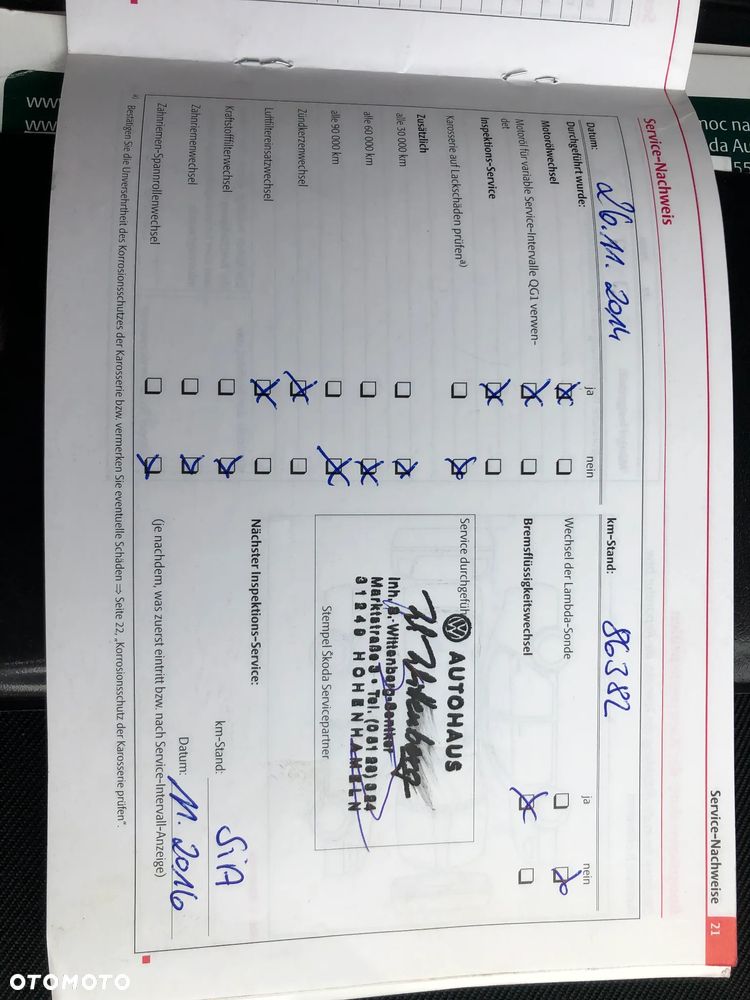 Service-Nachweise 21
Service-Nachweis
Datum: 26.11.2014
km-Stand: 86382
Durchgeführt wurde:
ja nein
ja nein
Motorölwechsel
Wechsel der Lambda-Sonde
Motoröl für variable Service-Intervalle QG1 verwen-
det
Bremsflüssigkeitswechsel
Inspektions-Service
Karosserie auf Lackschäden prüfen a)
Service durchgefüh
Zusätzlich
alle 30 000 km
alle 60 000 km
alle 90 000 km
AUTOHAUS
Inh. Wittenberg
Marktstraße 3 · Tel. (0 51 28) 3 24
31249 HOHENHAMELN
Stempel Škoda Servicepartner
Zündkerzenwechsel
Luftfiltereinsatzwechsel
Nächster Inspektions-Service:
Kraftstofffilterwechsel
km-Stand: SiA
Zahnriemenwechsel
Datum: 11.2016
Zahnriemen-Spannrollenwechsel
(je nachdem, was zuerst eintritt bzw. nach Service-Intervall-Anzeige)
a) Bestätigen Sie die Unversehrtheit des Korrosionsschutzes der Karosserie bzw. vermerken Sie eventuelle Schäden ⇒ Seite 22, „Korrosionsschutz der Karosserie prüfen".
www
www
moc na
da Au
OTOMOTO